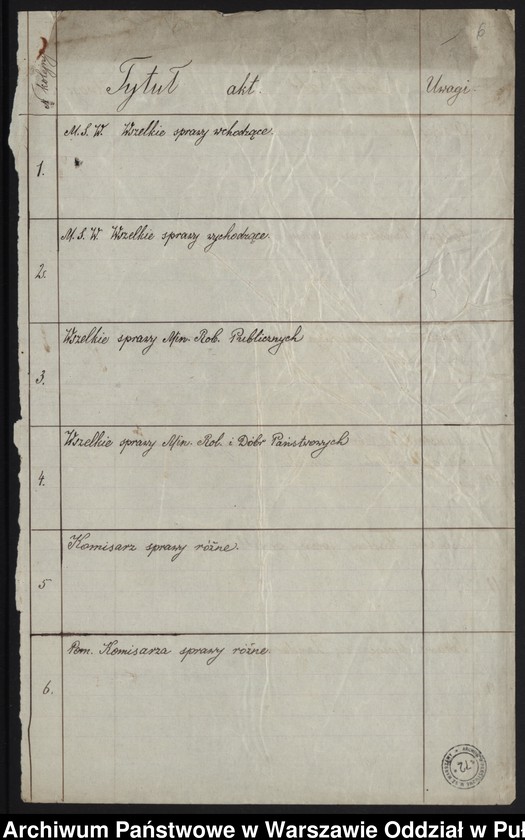 6
№ kolejny
Tytuł akt.
Uwagi
1. M.S.W. Wszelkie sprawy wchodzące.
2. M.S.W. Wszelkie sprawy wychodzące.
3. Wszelkie sprawy Min. Rob. Publicznych
4. Wszelkie sprawy Min. Rol. i Dóbr Państwowych
5 Komisarz sprawy różne.
6. Pom. Komisarza sprawy różne.
Archiwum Państwowe w Warszawie Oddział w Puł